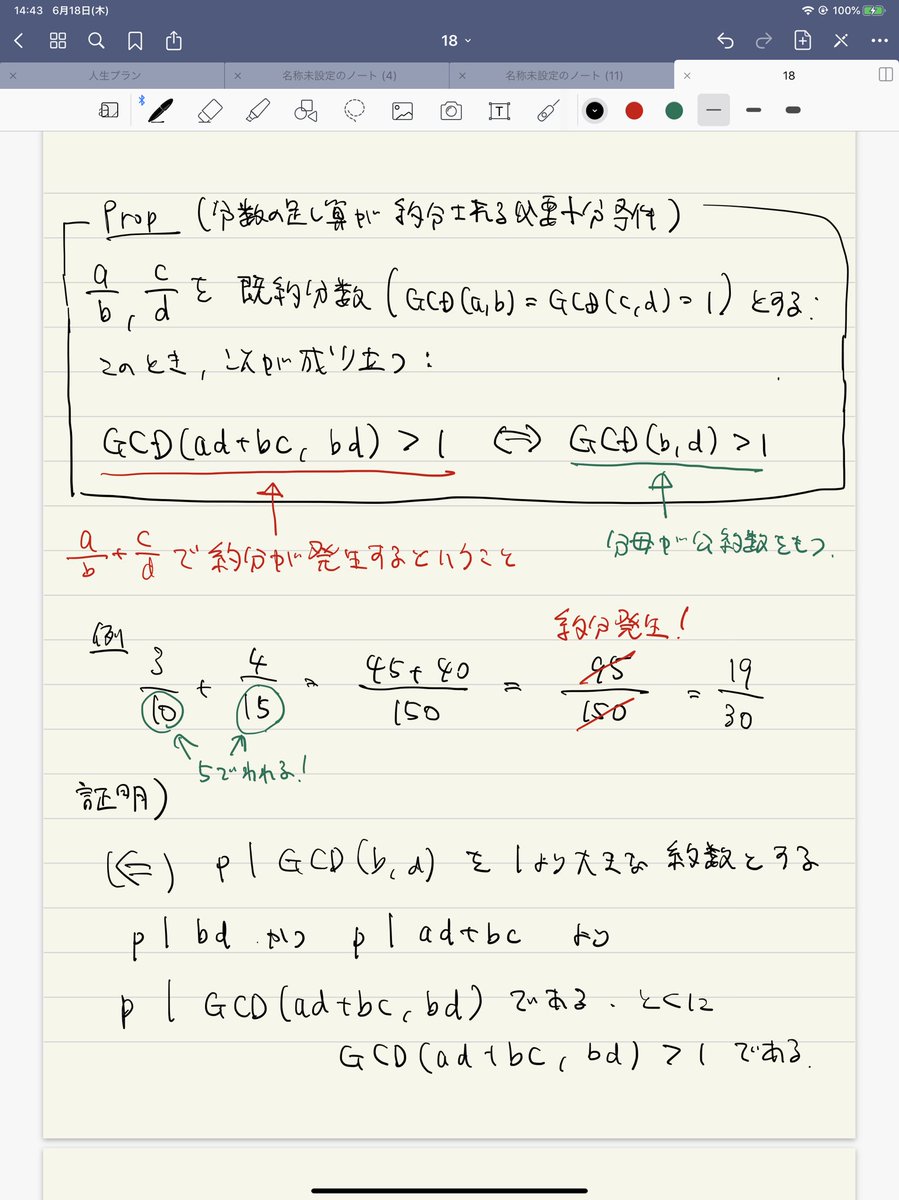 14:43 6月18日(木) 100%
18
人生プラン 名称未設定のノート (4) 名称未設定のノート (11) 18
Prop (分数の足し算が約分される必要十分条件)
a/b, c/d を 既約分数 (GCD(a,b) = GCD(c,d) = 1) とする.
このとき, 次が成り立つ:
GCD(ad+bc, bd) > 1 ⇔ GCD(b,d) > 1
a/b + c/d で約分が発生するということ
分母が公約数をもつ.
例
約分発生!
3/10 + 4/15 = 45+40/150 = 95/150 = 19/30
5でわれる!
証明)
(⇐) p | GCD(b,d) を 1より大きな 約数とする
p | bd かつ p | ad+bc より
p | GCD(ad+bc, bd) である. とくに
GCD(ad+bc, bd) > 1 である.